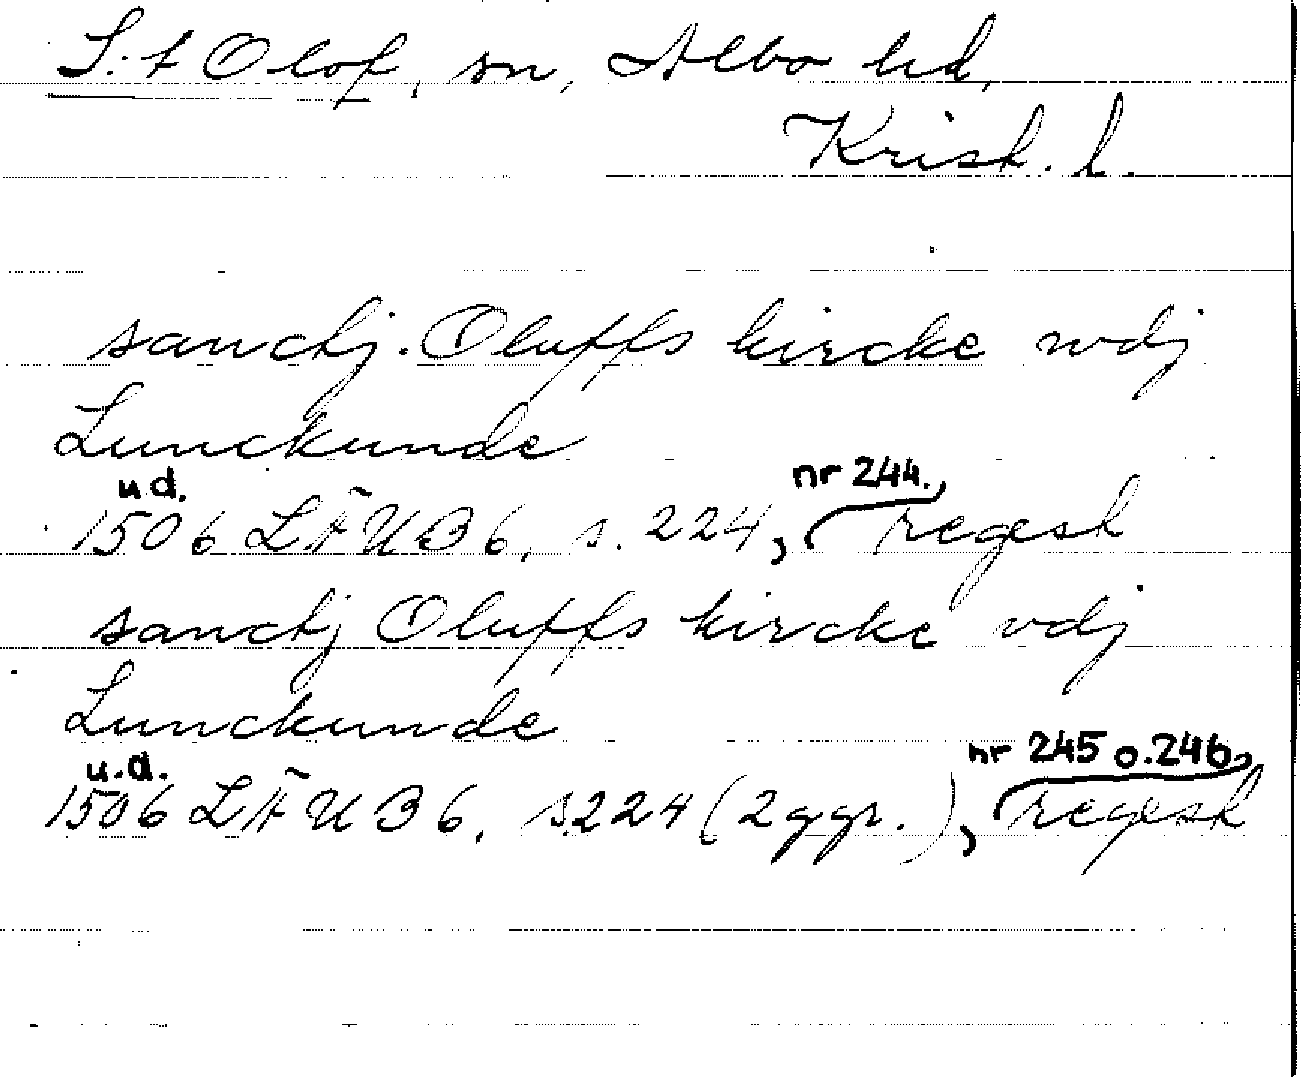 S:t Olof, sn, Albo hd,
Krist. l.
sanctj. Oluffs kircke wdj
Lunckunde
u d. nr 244.,
1506 LÄUB 6, s. 224, regest
sanctj Oluffs kircke vdj
Lunckunde
u.d. nr 245 o. 246,
1506 LÄUB 6, s224 (2ggr.), regest